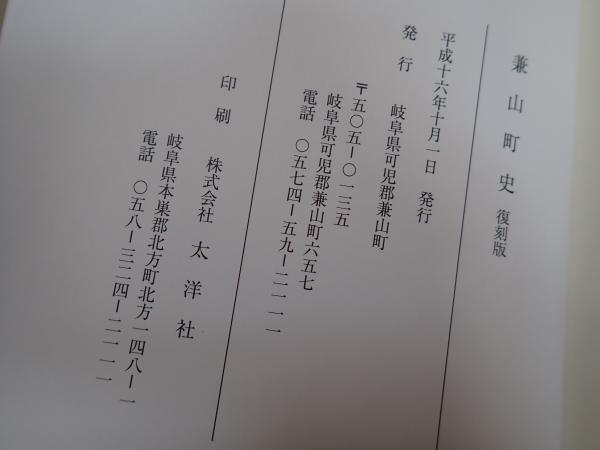 兼山町史 復刻版
平成十六年十月一日 発行
発行 岐阜県可児郡兼山町
〒五〇五ー〇一三五
岐阜県可児郡兼山町六五七
電話 〇五七四ー五九ー二一一一
印刷 株式会社 太洋社
岐阜県本巣郡北方町北方一四八ー一
電話 〇五八ー三二四ー二一一一